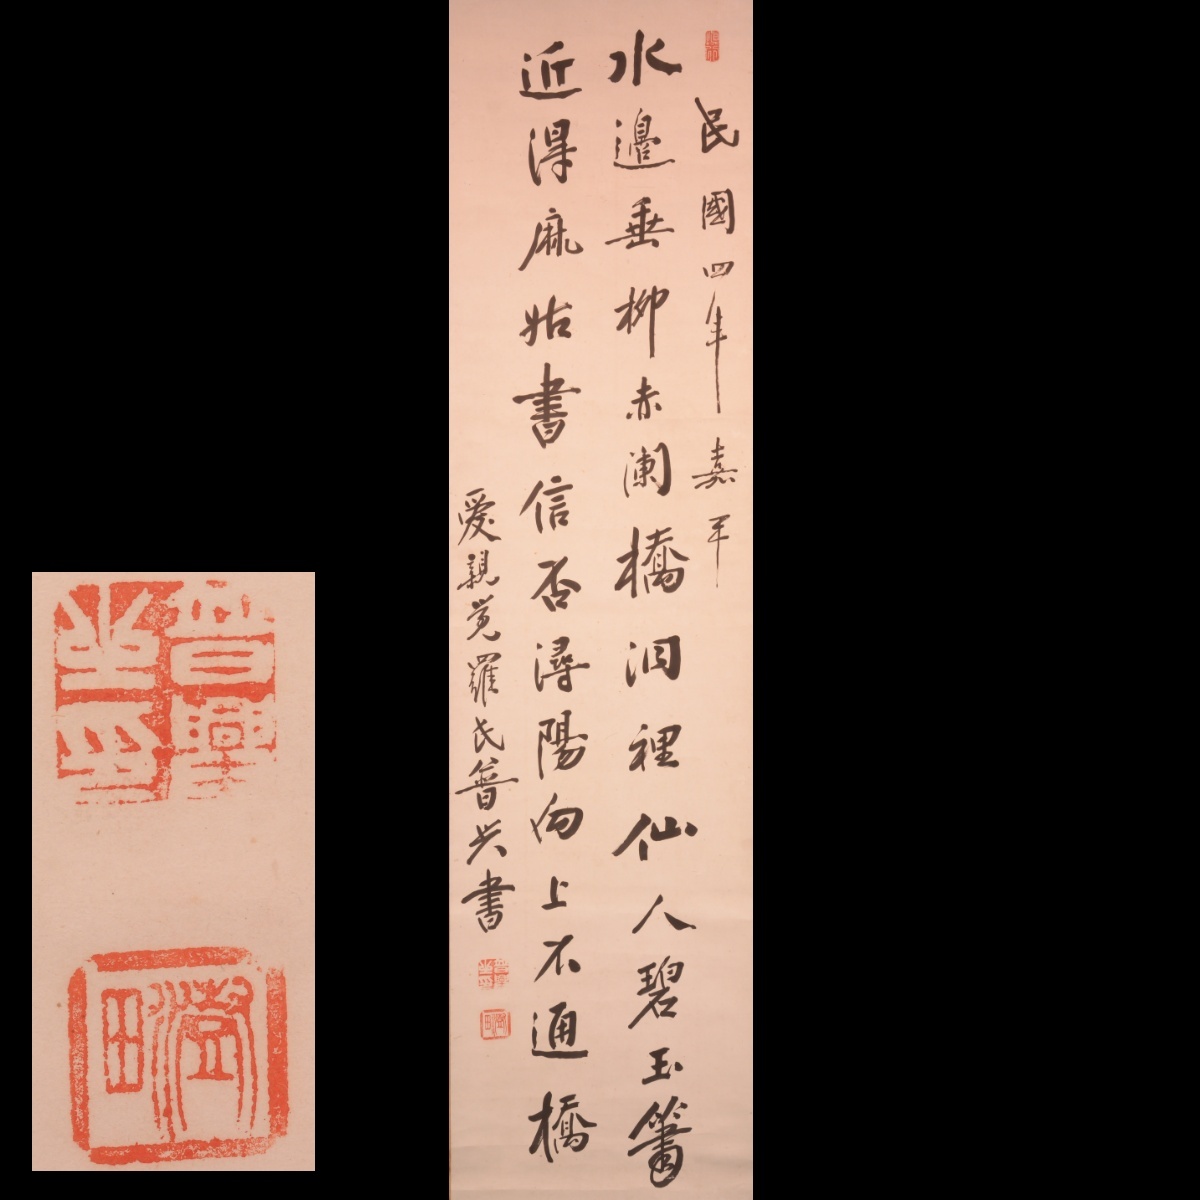 民國四年嘉平
水邊垂柳赤闌橋洞裡仙人碧玉簫
近得麻姑書信否潯陽向上不通橋
愛親覚羅氏普興書
普興之印